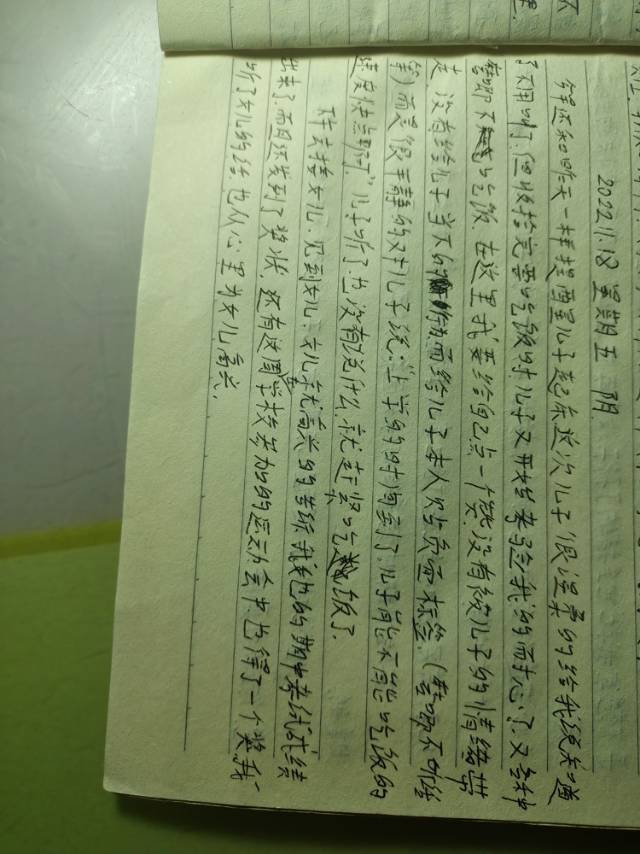 2022.11.18 星期五 阴
今早还和昨天一样提醒儿子起床这次儿子很温柔的给我说知道
了不用叫了.但收拾完要吃饭时儿子又开始考验我的耐心了.又各种
磨叽不吃饭.在这里我要给自己点一个赞没有被儿子的情绪带
走.没有给儿子当下的行为而给儿子本人贴负面标签.(磨叽不听话
等)而是很平静的对儿子说:"上学的时间到了,儿子能不能吃饭的
速度快点呀?"儿子听了也没有说什么.就赶紧吃饭了.
下午去接女儿.见到女儿.女儿就高兴的告诉我她的期中考试成绩
出来了.而且还发到了奖状.还有这周在学校参加的运动会中.也得了一个奖.我
听了女儿的话也从心里为女儿高兴.